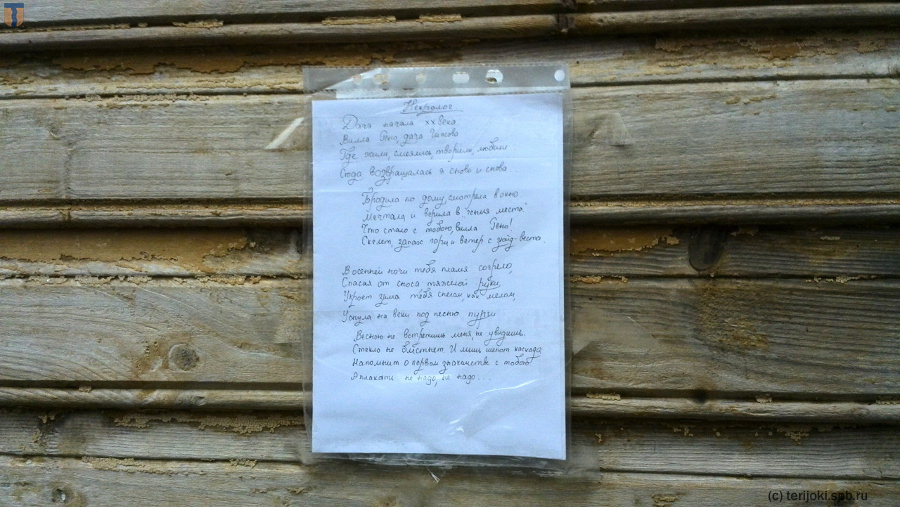 Некролог
Дача начала XX века
Вилла Рено, дача Чижова
Где жили, смеялись, творили, любили
Сюда возвращалась я снова и снова
Бродила по дому, смотрела в окно
Мечтала и верила в "гения места"
Что стало с тобою, вилла Рено!
Скелет, запах гари и ветер с уайд-веста.
В осенней ночи тебя пламя согрело,
Спасая от сноса тяжелой руки,
Укроет зима тебя снегом, как мелом,
Уснула на веки под песню пурги
Весною не встретишь меня, не увидишь.
Стекло не блестнет. И лишь шепот каскада
Напомнит о первом знакомстве с тобою
А плакать не надо, не надо...
(c) terijoki.spb.ru